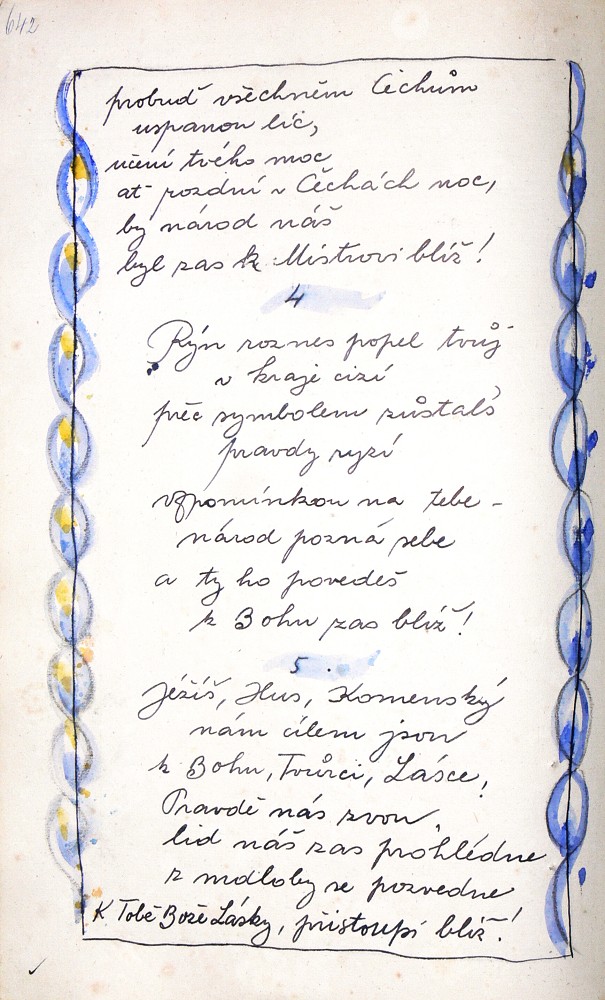 642
probuď všechněm Čechům
uspanou líc,
učení tvého moc
ať rozdní v Čechách noc,
by národ náš
byl zas k Mistrovi blíž!
4
Rýn roznes popel tvůj
v kraje cizí
přec symbolem zůstals
pravdy ryzí
vzpomínkou na tebe -
národ pozná sebe
a ty ho povedeš
k Bohu zas blíž!
5.
Ježíš, Hus, Komenský
nám cílem jsou
k Bohu, Tvůrci, Lásce,
Pravdě nás zvou,
lid náš zas prohlédne
z mdloby se pozvedne
K Tobě Bože Lásky, přistoupí blíž!